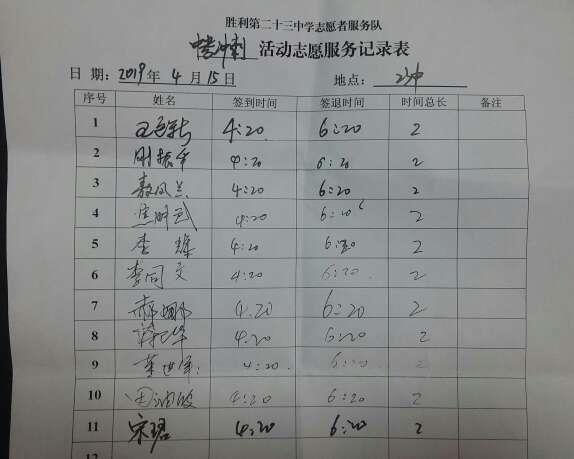 胜利第二十三中学志愿者服务队
中考冲刺 活动志愿服务记录表
日 期：2019年 4 月 15日 地点： 23中
序号 姓名 签到时间 签退时间 时间总长 备注
1 4:20 6:20 2
2 4:20 6:20 2
3 4:20 6:20 2
4 4:20 6:20 2
5 李 4:20 6:20 2
6 李同文 4:20 6:20 2
7 郝娜 4.20 6:20 2
8 4.20 6:20 2
9 4:20 6:20 2
10 4:20 6:20 2
11 宋珺 4:20 6:20 2
12